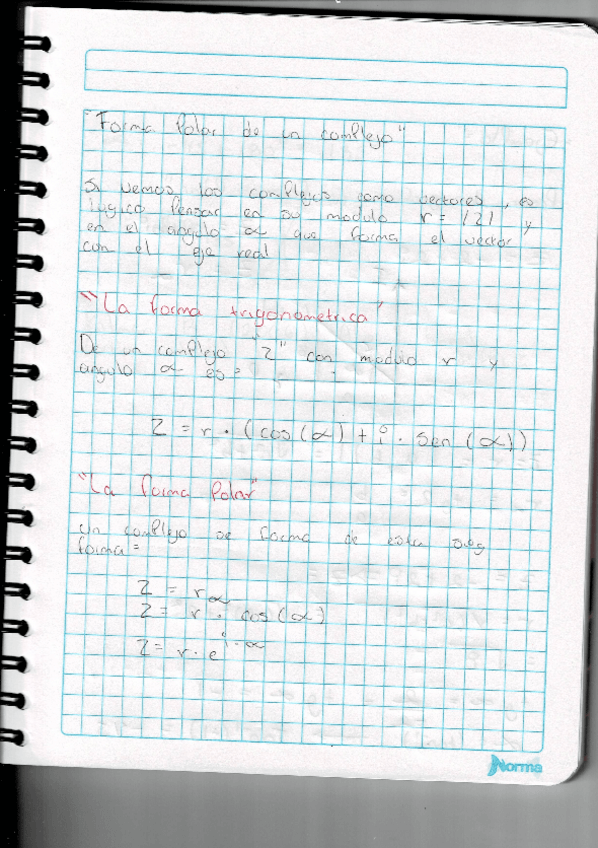 "Forma Polar de un complejo"
Si vemos los complejos como vectores, es
lógico pensar en su modulo r = |z| y
en el angulo α que forma el vector
con el eje real
"La forma trigonometrica"
De un complejo "z" con modulo r y
angulo α es:
Z = r · (cos(α) + i · sen(α))
"La forma Polar"
Un complejo se forma de esta sig
forma:
Z = r α
Z = r · cos(α)
Z = r · e^i·α
Norma